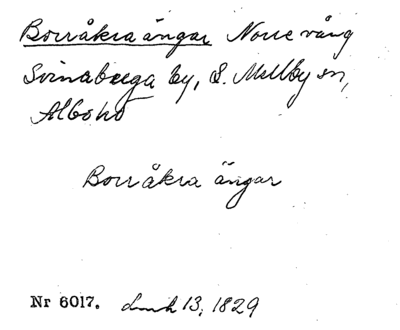 Borråkra ängar Norre vång
Svinaberga by, S. Mellby sn,
Albo hd
Borråkra ängar
Nr 6017. Lmh 13, 1829